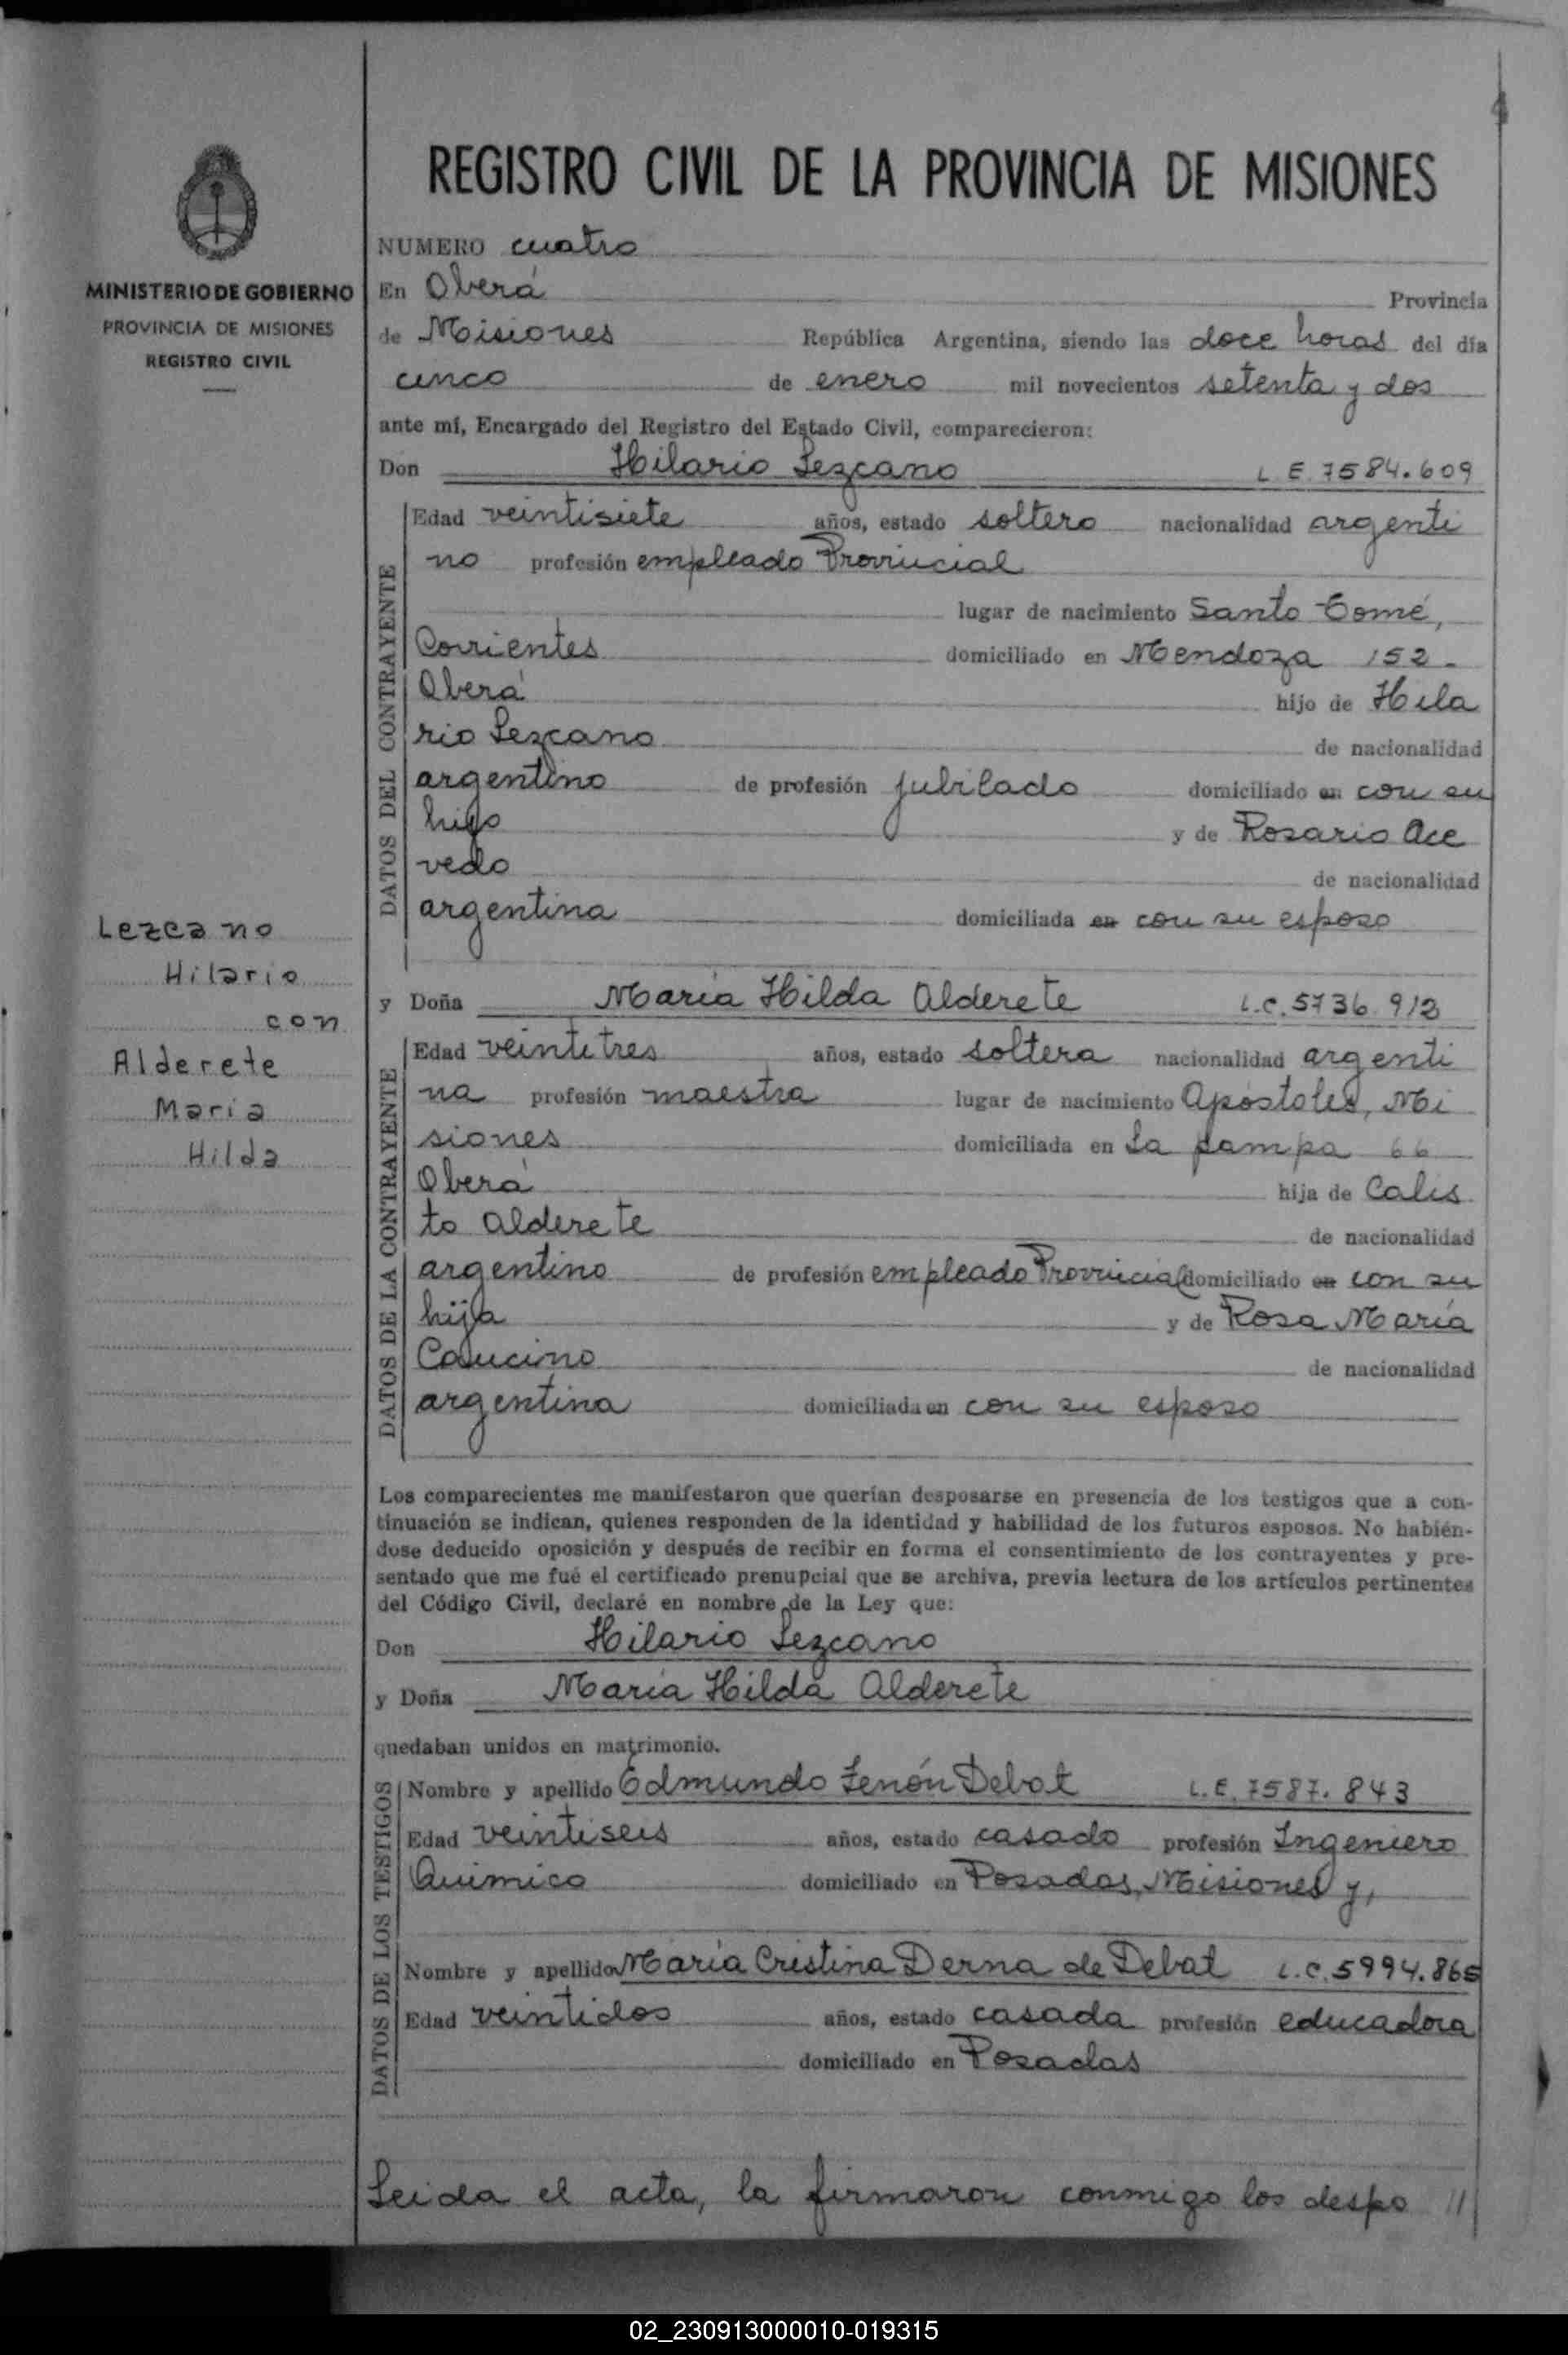 4
REGISTRO CIVIL DE LA PROVINCIA DE MISIONES
MINISTERIO DE GOBIERNO
PROVINCIA DE MISIONES
REGISTRO CIVIL
NUMERO cuatro
En Oberá Provincia
de Misiones República Argentina, siendo las doce horas del día
cinco de enero mil novecientos setenta y dos
ante mí, Encargado del Registro del Estado Civil, comparecieron:
Don Hilario Lezcano L.E. 7584.609
DATOS DEL CONTRAYENTE
Edad veintisiete años, estado soltero nacionalidad argenti
no profesión empleado Provincial
lugar de nacimiento Santo Tomé,
Corrientes domiciliado en Mendoza 152-
Oberá hijo de Hila
rio Lezcano de nacionalidad
argentino de profesión jubilado domiciliado en con su
hijo y de Rosario Ace
vedo de nacionalidad
argentina domiciliada en con su esposo
Lezcano
Hilario
con
Alderete
Maria
Hilda
y Doña María Hilda Alderete L.C. 5736.912
DATOS DE LA CONTRAYENTE
Edad veintitres años, estado soltera nacionalidad argenti
na profesión maestra lugar de nacimiento Apóstoles, Mi
siones domiciliada en La pampa 66
Oberá hija de Calis
to Alderete de nacionalidad
argentino de profesión empleado Provincial domiciliado en con su
hija y de Rosa María
Caucino de nacionalidad
argentina domiciliada en con su esposo
Los comparecientes me manifestaron que querían desposarse en presencia de los testigos que a con-
tinuación se indican, quienes responden de la identidad y habilidad de los futuros esposos. No habién-
dose deducido oposición y después de recibir en forma el consentimiento de los contrayentes y pre-
sentado que me fué el certificado prenupcial que se archiva, previa lectura de los artículos pertinentes
del Código Civil, declaré en nombre de la Ley que:
Don Hilario Lezcano
y Doña María Hilda Alderete
quedaban unidos en matrimonio.
DATOS DE LOS TESTIGOS
Nombre y apellido Edmundo Zenón Debat L.E. 7587.843
Edad veintiseis años, estado casado profesión Ingeniero
Quimico domiciliado en Posadas, Misiones y,
Nombre y apellido María Cristina Derna de Debat L.C. 5994.865
Edad veintidos años, estado casada profesión educadora
domiciliado en Posadas
Leida el acta, la firmaron conmigo los despo //
02_230913000010-019315